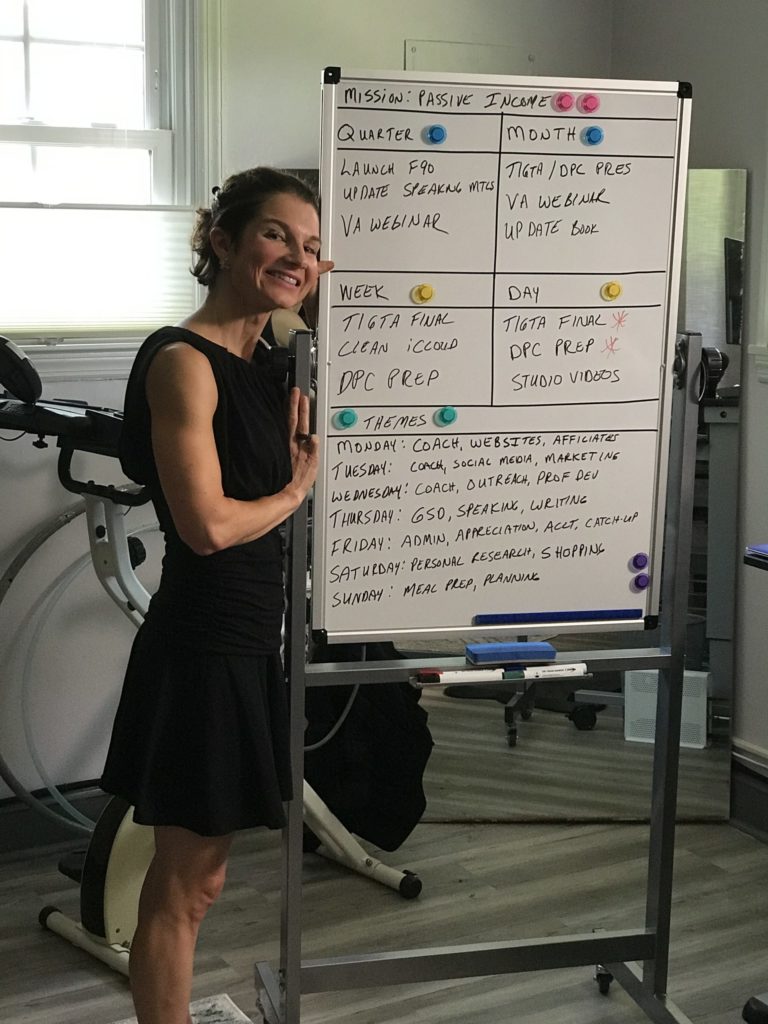 MISSION: PASSIVE INCOME
QUARTER
LAUNCH F90
UPDATE SPEAKING MTLS
VA WEBINAR
MONTH
TIGTA/DPC PRES
VA WEBINAR
UPDATE BOOK
WEEK
TIGTA FINAL
CLEAN iCLOUD
DPC PREP
DAY
TIGTA FINAL *
DPC PREP *
STUDIO VIDEOS
THEMES
MONDAY: COACH, WEBSITES, AFFILIATES
TUESDAY: COACH, SOCIAL MEDIA, MARKETING
WEDNESDAY: COACH, OUTREACH, PROF DEV
THURSDAY: GSD, SPEAKING, WRITING
FRIDAY: ADMIN, APPRECIATION, ACCT, CATCH-UP
SATURDAY: PERSONAL RESEARCH, SHOPPING
SUNDAY: MEAL PREP, PLANNING